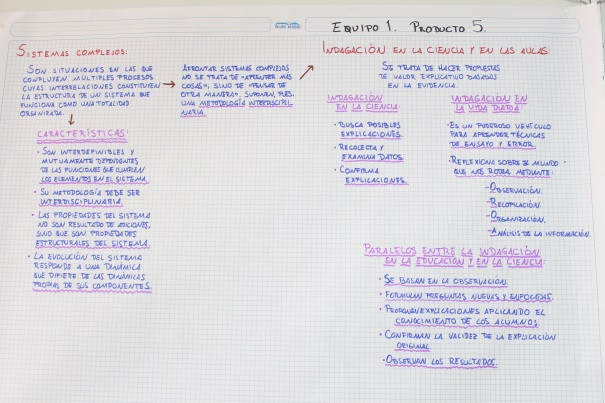 EQUIPO 1. PRODUCTO 5.
SISTEMAS COMPLEJOS:
SON SITUACIONES EN LAS QUE
CONFLUYEN MÚLTIPLES PROCESOS
CUYAS INTERRELACIONES CONSTITUYEN
LA ESTRUCTURA DE UN SISTEMA QUE
FUNCIONA COMO UNA TOTALIDAD
ORGANIZADA.
AFRONTAR SISTEMAS COMPLEJOS
NO SE TRATA DE "APRENDER MÁS
COSAS", SINO DE "PENSAR DE
OTRA MANERA". SUPONEN, PUES,
UNA METODOLOGÍA INTERDISCIPLI-
NARIA.
CARACTERÍSTICAS:
• SON INTERDEFINIBLES Y
MUTUAMENTE DEPENDIENTES
DE LAS FUNCIONES QUE CUMPLEN
LOS ELEMENTOS EN EL SISTEMA.
• SU METODOLOGÍA DEBE SER
INTERDISCIPLINARIA.
• LAS PROPIEDADES DEL SISTEMA
NO SON RESULTADO DE ADICIONES,
SINO QUE SON PROPIEDADES
ESTRUCTURALES DEL SISTEMA.
• LA EVOLUCIÓN DEL SISTEMA
RESPONDE A UNA DINÁMICA
QUE DIFIERE DE LAS DINÁMICAS
PROPIAS DE SUS COMPONENTES.
INDAGACIÓN EN LA CIENCIA Y EN LAS AULAS:
SE TRATA DE HACER PROPUESTAS
DE VALOR EXPLICATIVO BASADOS
EN LA EVIDENCIA.
INDAGACIÓN
EN LA CIENCIA
• BUSCA POSIBLES
EXPLICACIONES.
• RECOLECTA Y
EXAMINA DATOS.
• CONFIRMA
EXPLICACIONES.
INDAGACIÓN EN
LA VIDA DIARIA
• ES UN PODEROSO VEHÍCULO
PARA APRENDER TÉCNICAS
DE ENSAYO Y ERROR.
• REFLEXIONA SOBRE EL MUNDO
QUE NOS RODEA MEDIANTE:
-OBSERVACIÓN.
-RECOPILACIÓN.
-ORGANIZACIÓN.
-ANÁLISIS DE LA INFORMACIÓN.
PARALELOS ENTRE LA INDAGACIÓN
EN LA EDUCACIÓN Y EN LA CIENCIA:
• SE BASAN EN LA OBSERVACIÓN.
• FORMULAN PREGUNTAS NUEVAS Y ENFOCADAS.
• PROPONEN EXPLICACIONES APLICANDO EL
CONOCIMIENTO DE LOS ALUMNOS.
• CONFIRMAN LA VALIDEZ DE LA EXPLICACIÓN
ORIGINAL.
• OBSERVAN LOS RESULTADOS.